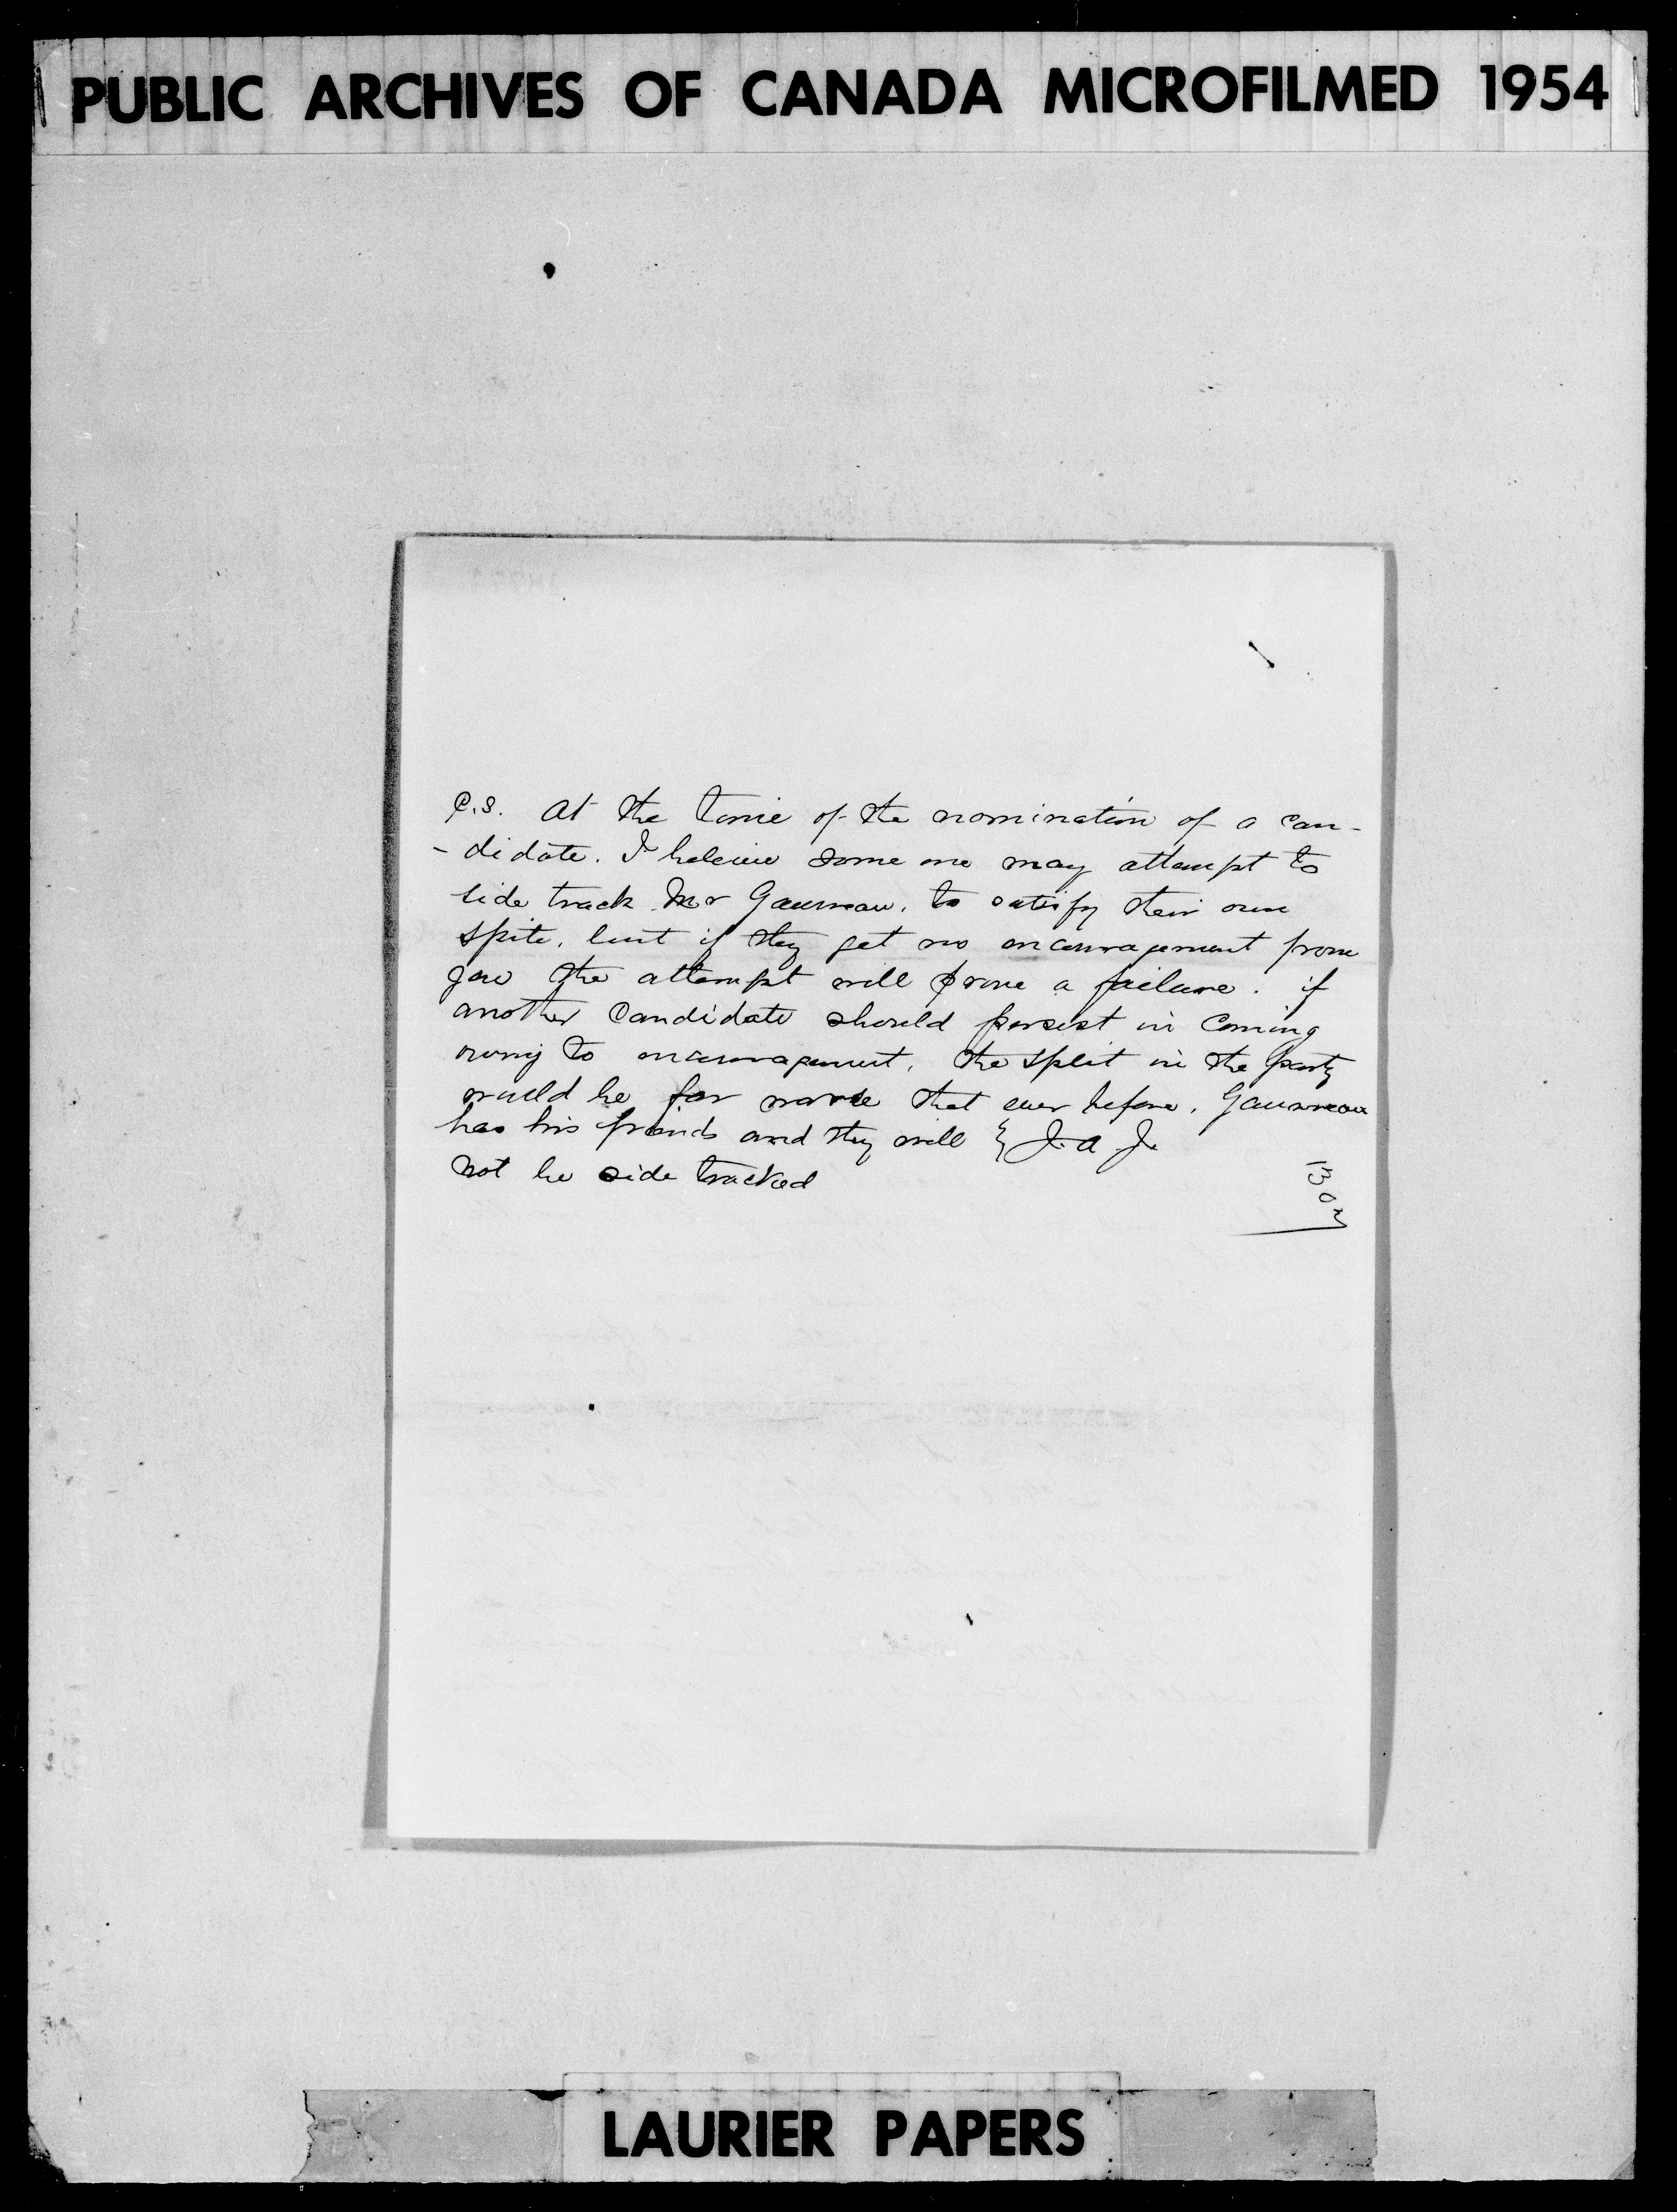 PUBLIC ARCHIVES OF CANADA MICROFILMED 1954
P.S. At the time of the nomination of a can-
-didate. I beleive some one may attempt to
side track Mr Gauvreau, to satisfy their own
spite, but if they get no encouragement from
you the attempt will prove a failure. if
another Candidate should persist in Coming
owing to encouragement, the split in the party
would be far worse that ever before, Gauvreau
has his friends and they will } J. A J.
not be side tracked
LAURIER PAPERS